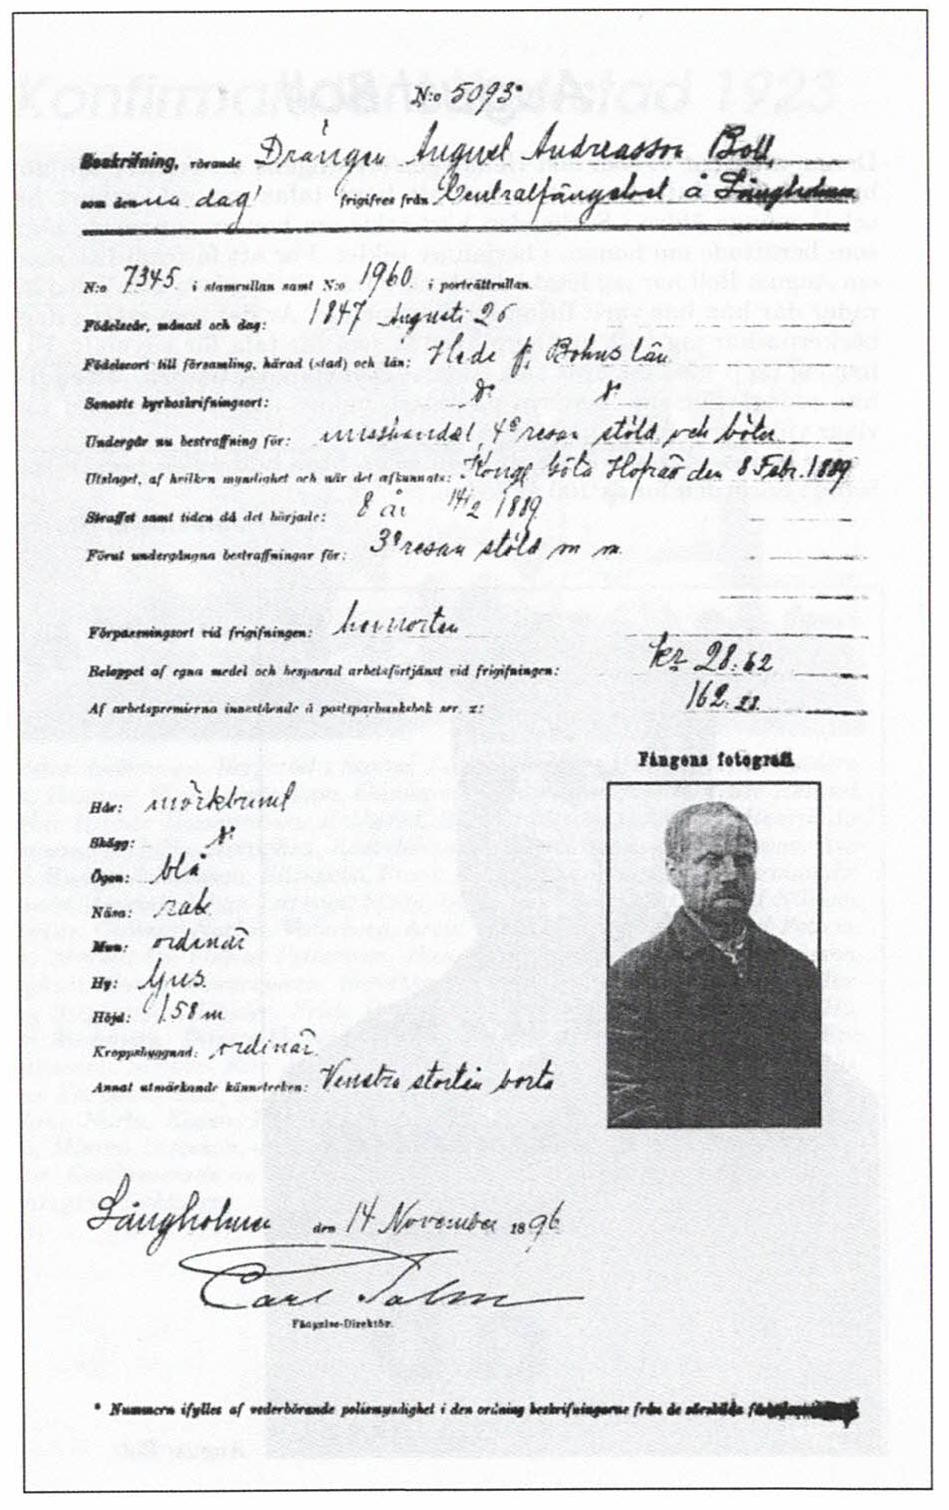 N:o 5093*
Beskrifning, rörande Drängen August Andreasson Boll
som denna dag frigifves från Centralfängelset å Långholmen
N:o 7345 i stamrullan samt N:o 1960 i porträttrullan.
Födelseår, månad och dag: 1847 Augusti 26
Födelseort till församling, härad (stad) och län: Hede f, Bohus län
Senaste kyrkoskrifningsort: d:o d:o
Undergår nu bestraffning för: misshandel, 4e resan stöld och böter
Utslaget, af hvilken myndighet och när det afkunnats: Kongl. Göta Hofrätt den 8 Febr. 1889
Straffet samt tiden då det började: 8 år 14/2 1889
Förut undergångna bestraffningar för: 3e resan stöld m m.
Förpassningsort vid frigifningen: hemorten
Beloppet af egna medel och besparad arbetsförtjänst vid frigifningen: kr 28:62
Af arbetspremierna innestående å postsparbanksbok ser. z: 162:
Fångens fotografi
Hår: mörkbrunt
Skägg: d:o
Ögon: blå
Näsa: rak
Mun: ordinär
Hy: ljus
Höjd: 1.58 m
Kroppsbyggnad: ordinär
Annat utmärkande kännetecken: Venstra stortån borta
Långholmen den 14 November 1896
Carl
Fängelse-Direktör.
* Nummern ifylles af vederbörande polismyndighet i den ordning beskrifningarne från de särskilda